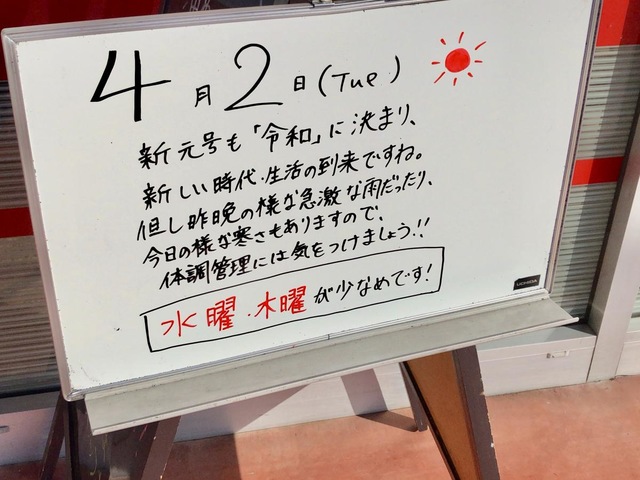 4月2日(Tue)
新元号も「令和」に決まり、
新しい時代・生活の到来ですね。
但し昨晩の様な急激な雨だったり、
今日の様な寒さもありますので、
体調管理には気をつけましょう!!
水曜・木曜が少なめです!
UCHIDA